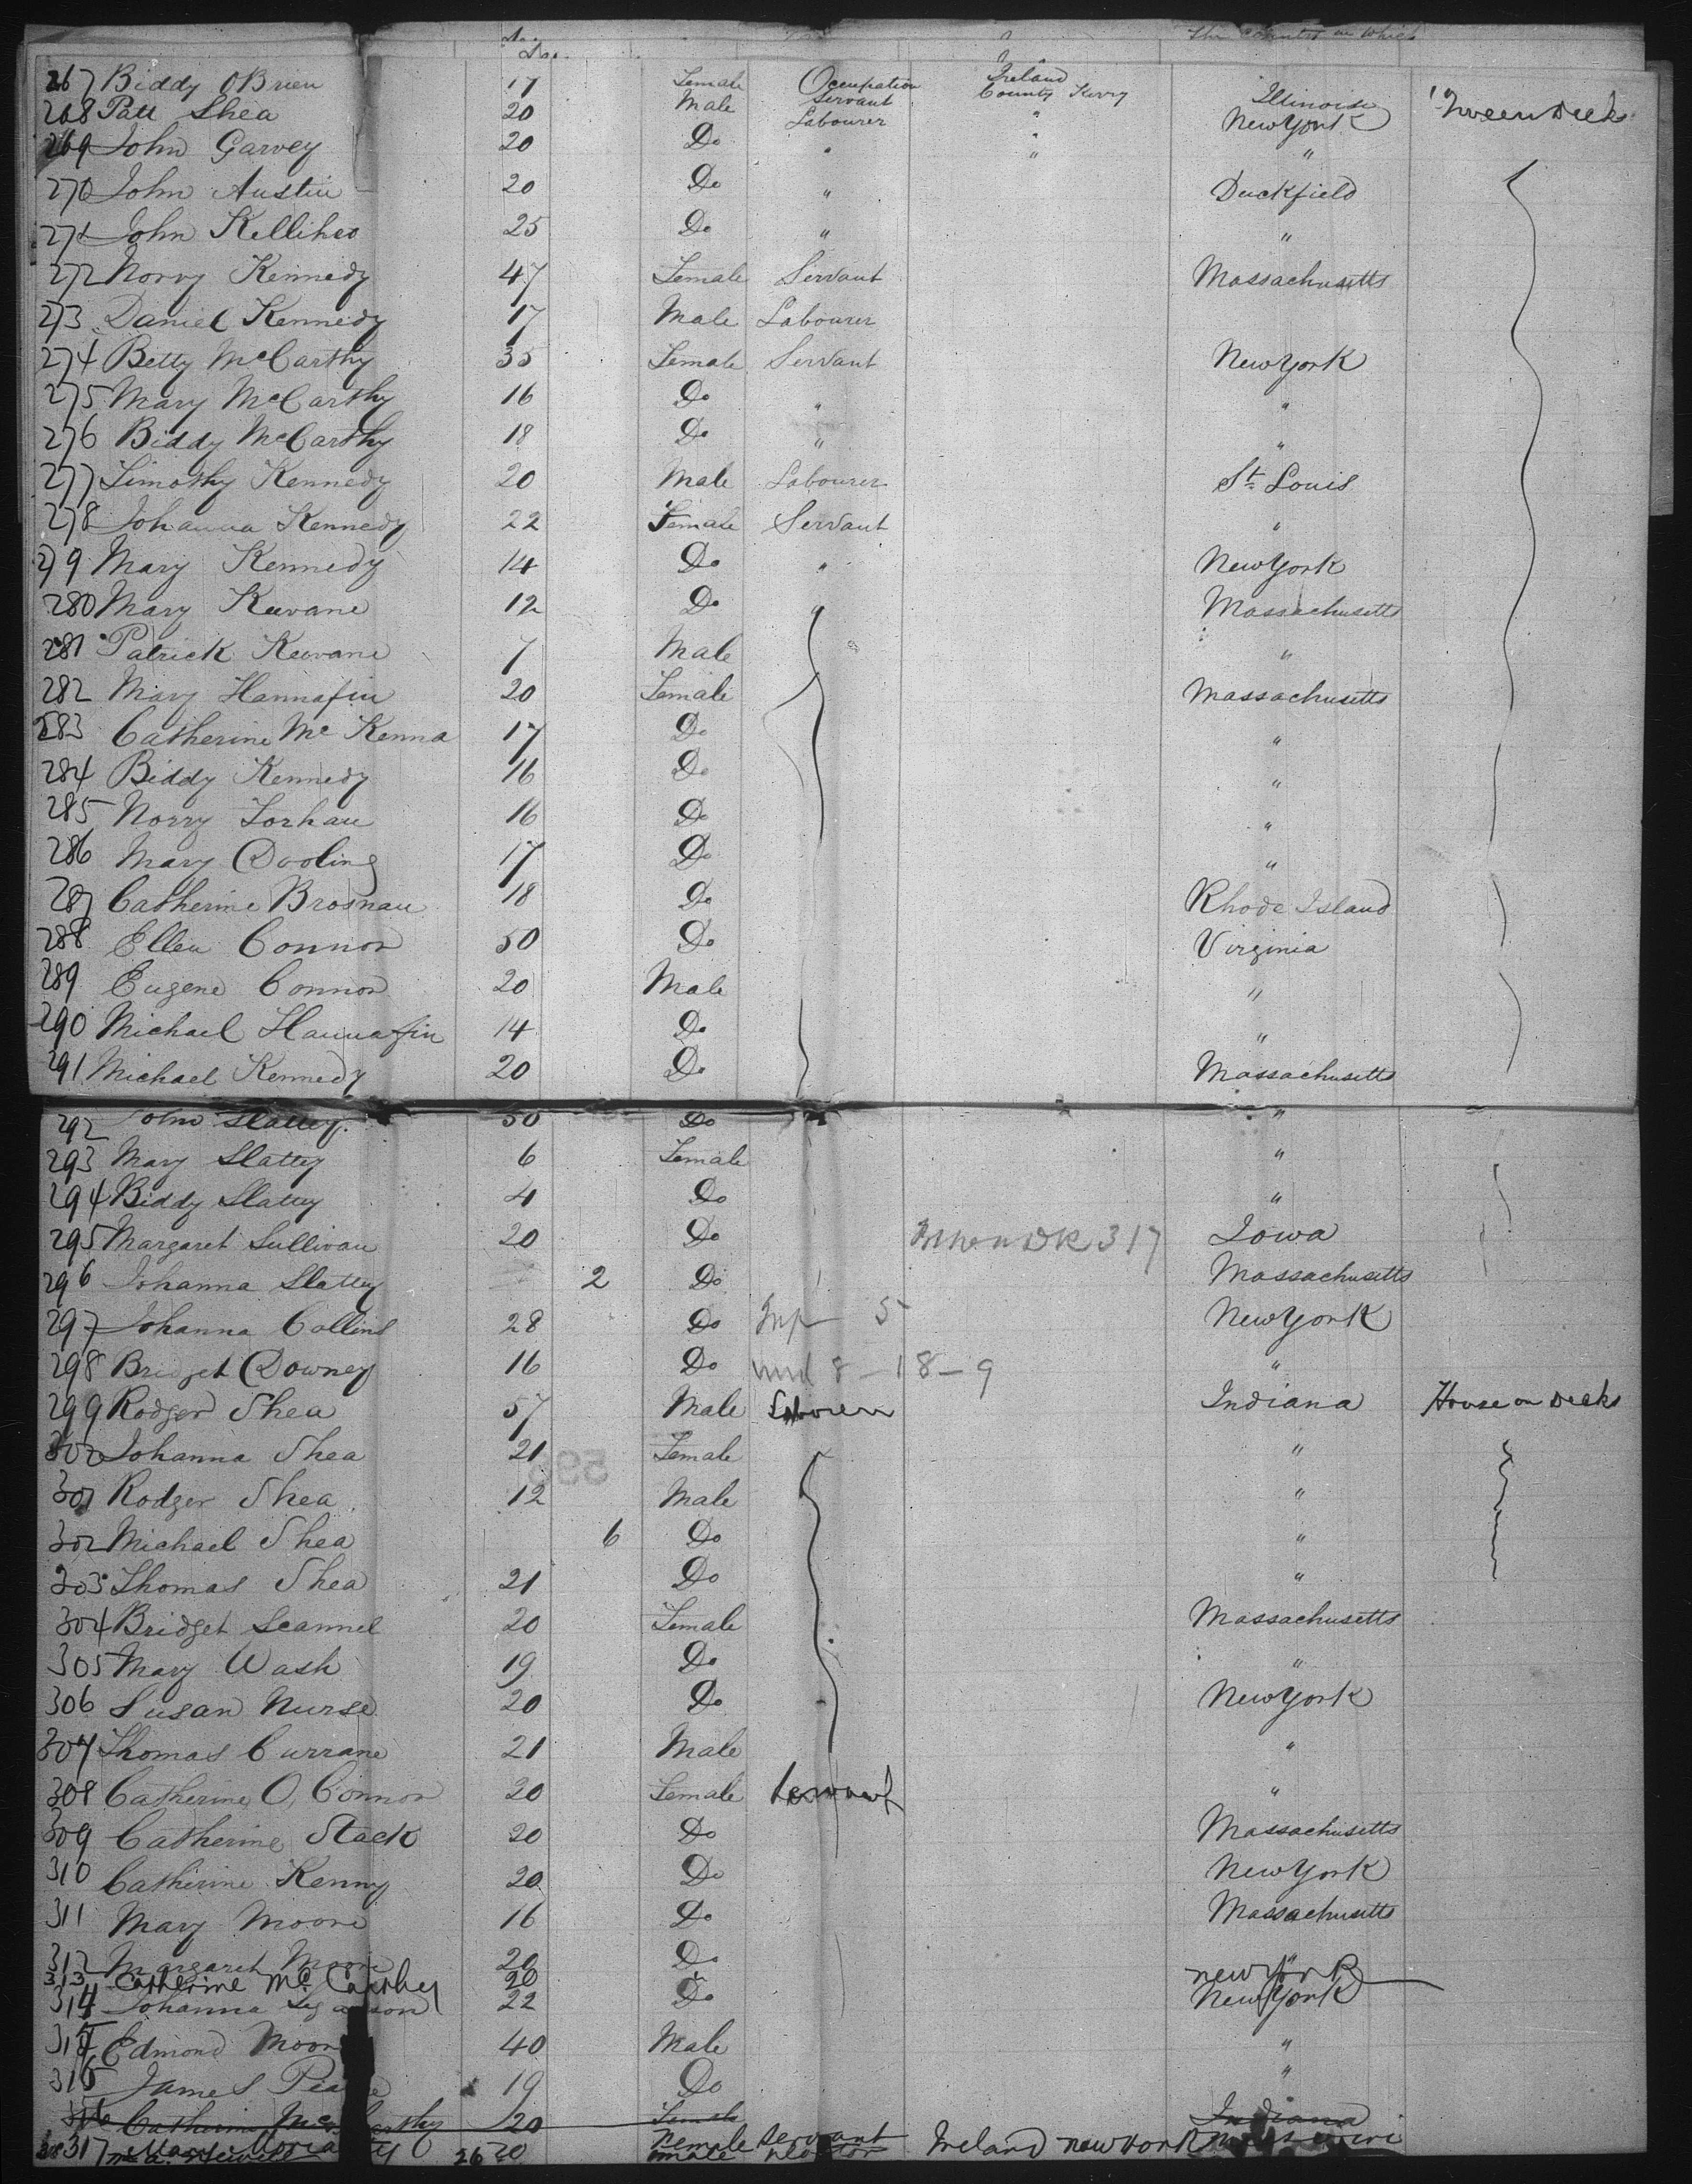 The Country in which
267 Biddy OBrien 17 Female Occupation Servant Ireland County Kerry Illinoise 'Tween Decks
268 Patt Shea 20 Male Labourer " New York
269 John Garvey 20 Do " " "
270 John Austin 20 Do " Duckfield
271 John Kelliher 25 Do " "
272 Norry Kennedy 47 Female Servant Massachusetts
273 Daniel Kennedy 17 Male Labourer
274 Betty McCarthy 35 Female Servant New York
275 Mary McCarthy 16 Do " "
276 Biddy McCarthy 18 Do " "
277 Timothy Kennedy 20 Male Labourer St Louis
278 Johanna Kennedy 22 Female Servant "
279 Mary Kennedy 14 Do " New York
280 Mary Kevane 12 Do " Massachusetts
281 Patrick Kevane 7 Male "
282 Mary Hannafin 20 Female Massachusetts
283 Catherine Mc Kenna 17 Do "
284 Biddy Kennedy 16 Do "
285 Norry Torhan 16 Do "
286 Mary Dooling 17 Do "
287 Catherine Brosnan 18 Do Rhode Island
288 Ellen Connor 50 Do Virginia
289 Eugene Connor 20 Male "
290 Michael Hannafin 14 Do "
291 Michael Kennedy 20 Do Massachusetts
292 John Slattey 50 Do "
293 Mary Slattey 6 Female "
294 Biddy Slattey 4 Do "
295 Margaret Sullivan 20 Do 317 Iowa
296 Johanna Slattey 2 Do Massachusetts
297 Johanna Collins 28 Do Inf 5 New York
298 Bridget Downey 16 Do und 8 - 18 - 9 "
299 Rodger Shea 57 Male Laborer Indiana House on Decks
300 Johanna Shea 21 Female "
301 Rodger Shea 12 Male "
302 Michael Shea 6 Do "
303 Thomas Shea 21 Do "
304 Bridget Scannel 20 Female Massachusetts
305 Mary Wash 19 Do "
306 Susan Nurse 20 Do New York
307 Thomas Currane 21 Male "
308 Catherine O, Connor 20 Female Servant "
309 Catherine Stack 20 Do Massachusetts
310 Catherine Kenny 20 Do New York
311 Mary Moore 16 Do Massachusetts
312 Margaret Moore 20 Do "
313 Catherine Mc Carthy 20 " New York
314 Johanna 22 Do New York
315 Edmond Moor 40 Male "
316 James 19 Do "
316 Catherine McCarthy 20 Female Indiana
317 Mary 20 Female Servant Ireland New York
26 male Doctor